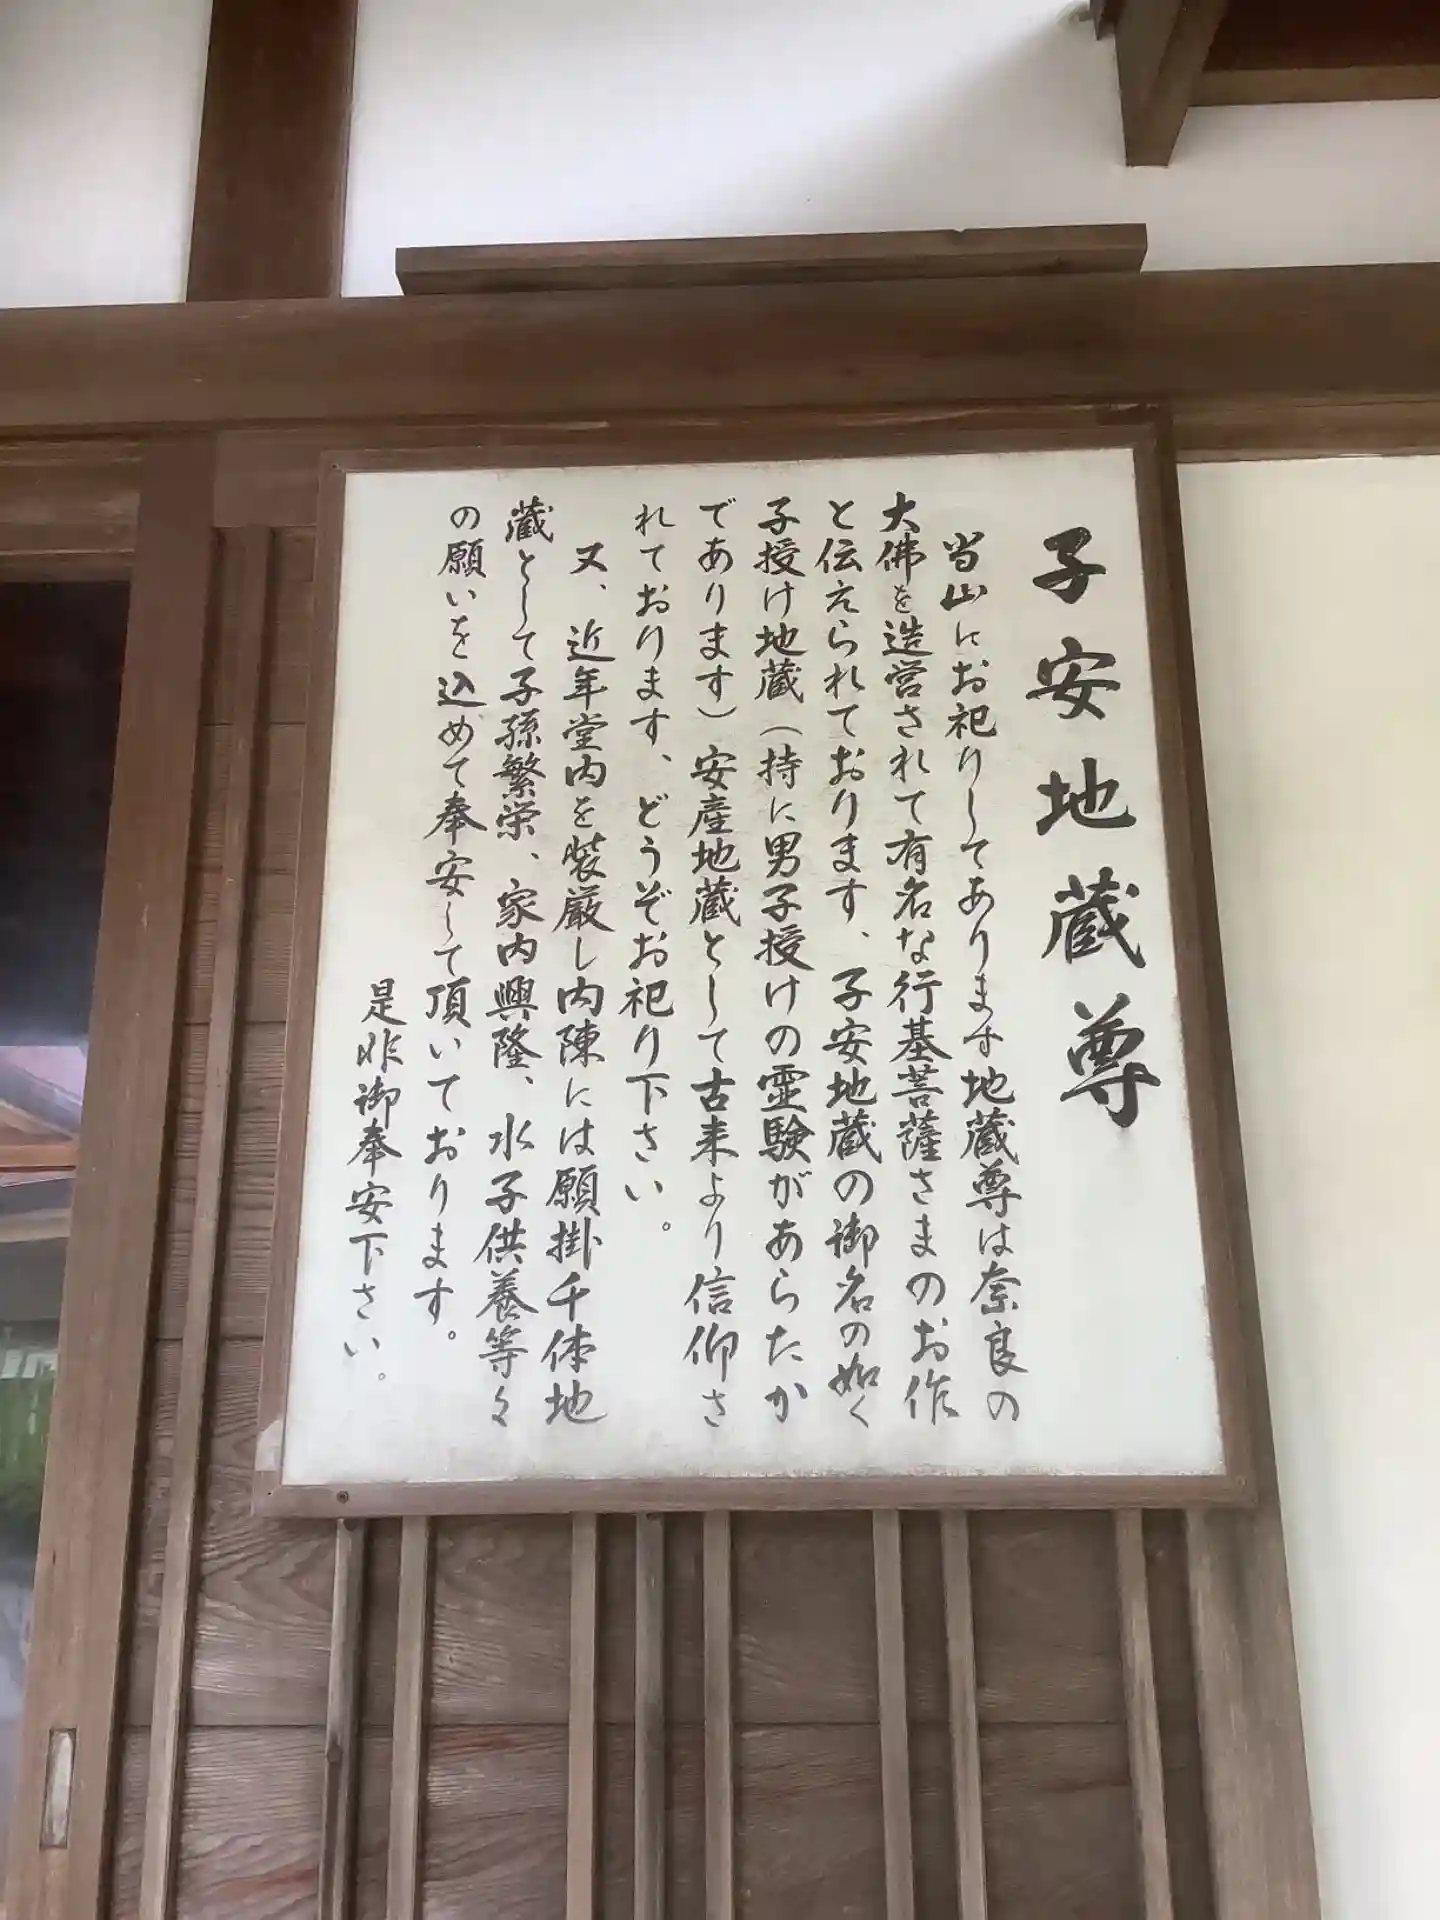 子安地蔵尊
当山にお祀りしてあります地蔵尊は奈良の
大佛を造営されて有名な行基菩薩さまのお作
と伝えられております、子安地蔵の御名の如く
子授け地蔵（持に男子授けの霊験があらたか
であります）安産地蔵として古来より信仰さ
れております、どうぞお祀り下さい。
又、近年堂内を装厳し内陳には願掛千体地
蔵として子孫繁栄、家内興隆、水子供養等々
の願いを込めて奉安して頂いております。
是非御奉安下さい。